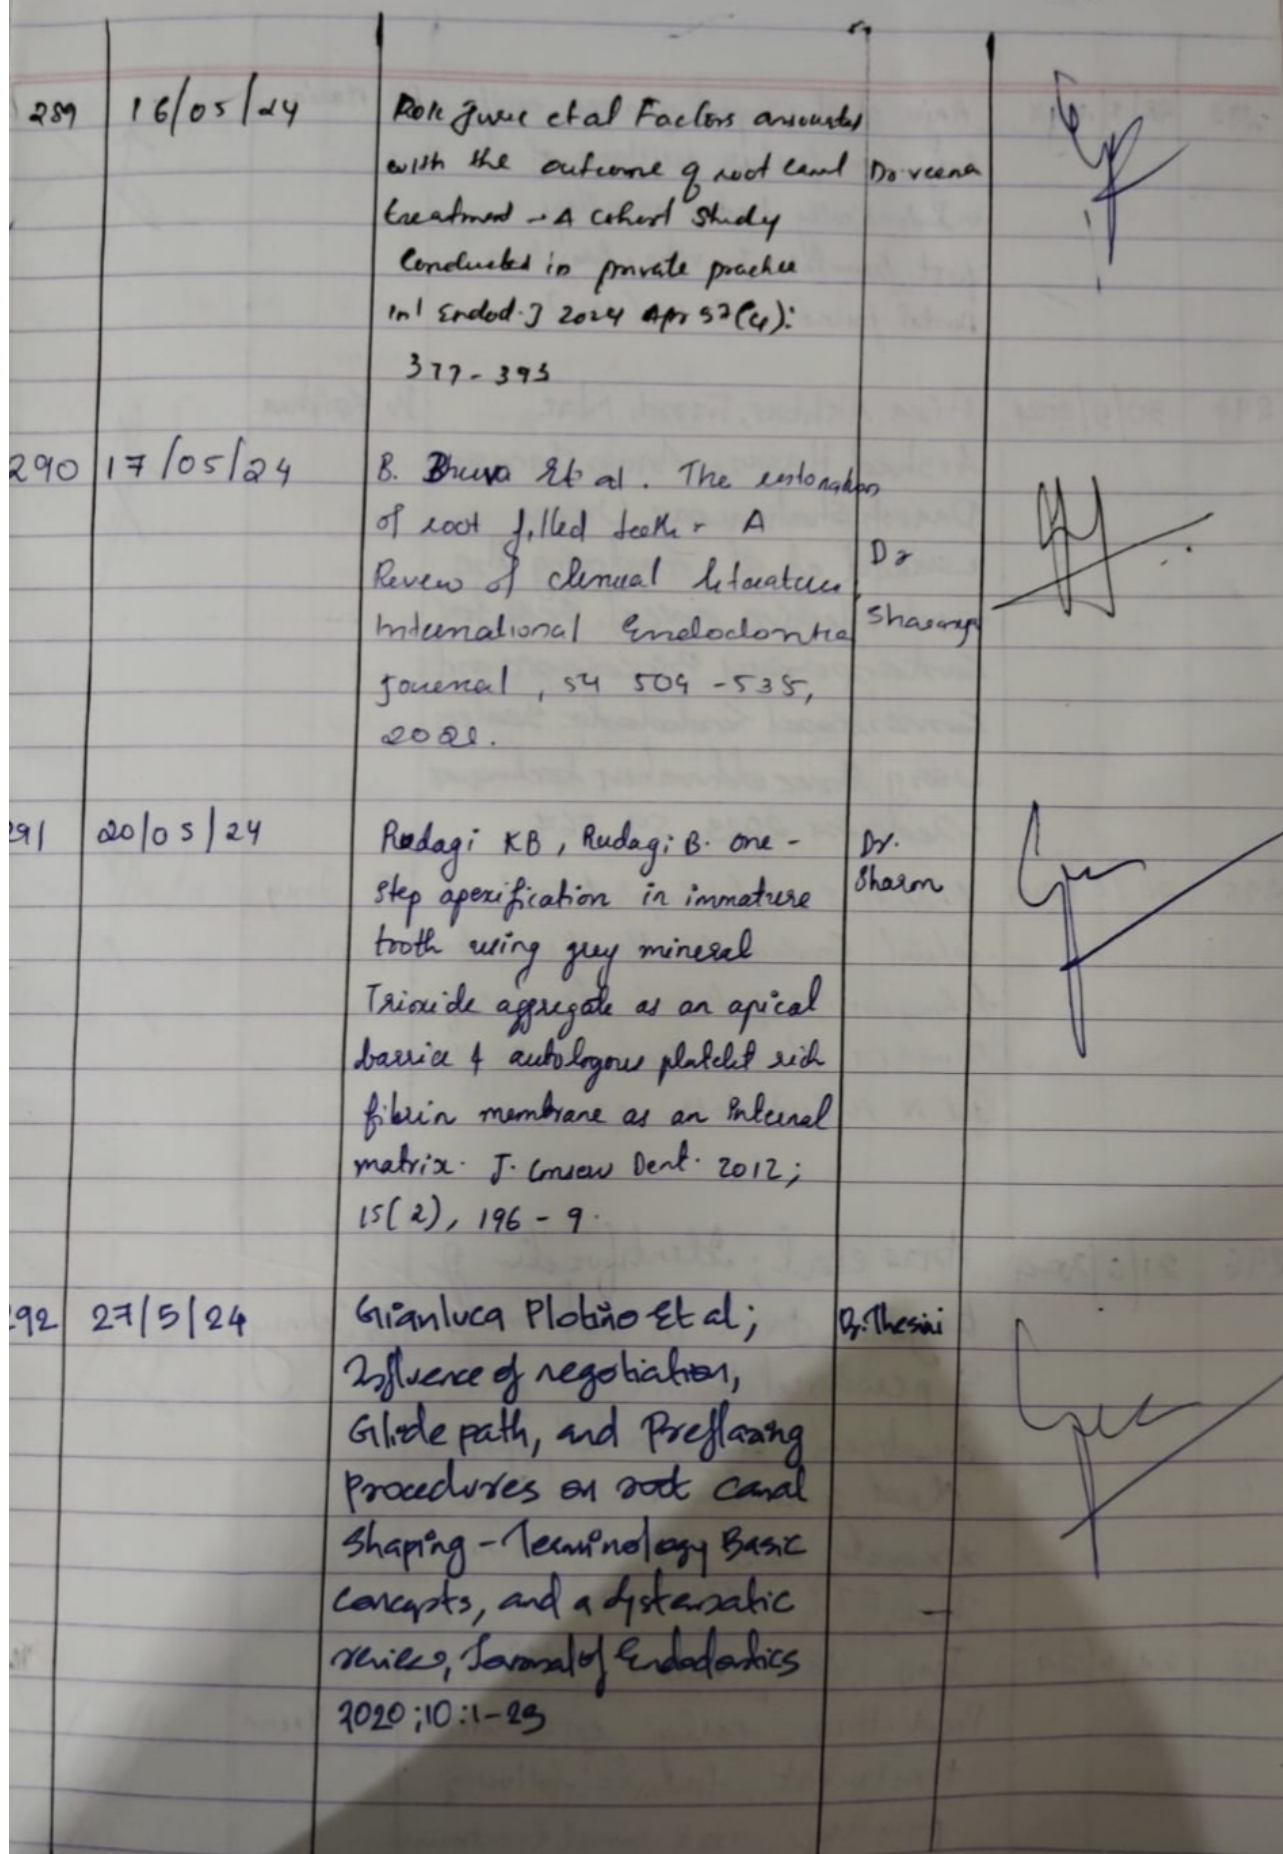 289 16/05/24 Rok Jurie et al Factors associated
with the outcome of root canal Dr veena
treatment - A cohort study
Conducted in private practice
Int Endod. J 2024 Apr 57(4):
377-393
290 17/05/24 B. Bhuva Et al. The restoration
of root filled teeth - A
Dr
Review of clinical literature
International Endodontic Sharanya
journal, 54 509 -535,
2021.
291 20/05/24 Rudagi KB, Rudagi B. one - Dr.
step apexification in immature Sharon
tooth using grey mineral
Trioxide aggregate as an apical
barrier & autologous platelet rich
fibrin membrane as an internal
matrix. J. Conserv Dent. 2012;
15(2), 196 - 9.
292 27/5/24 Gianluca Plotino Et al; Dr. Thesini
Influence of negotiation,
Glide path, and Preflaring
Procedures on root canal
Shaping - Terminology Basic
concepts, and a systematic
review, Journal of Endodontics
2020;10:1-29